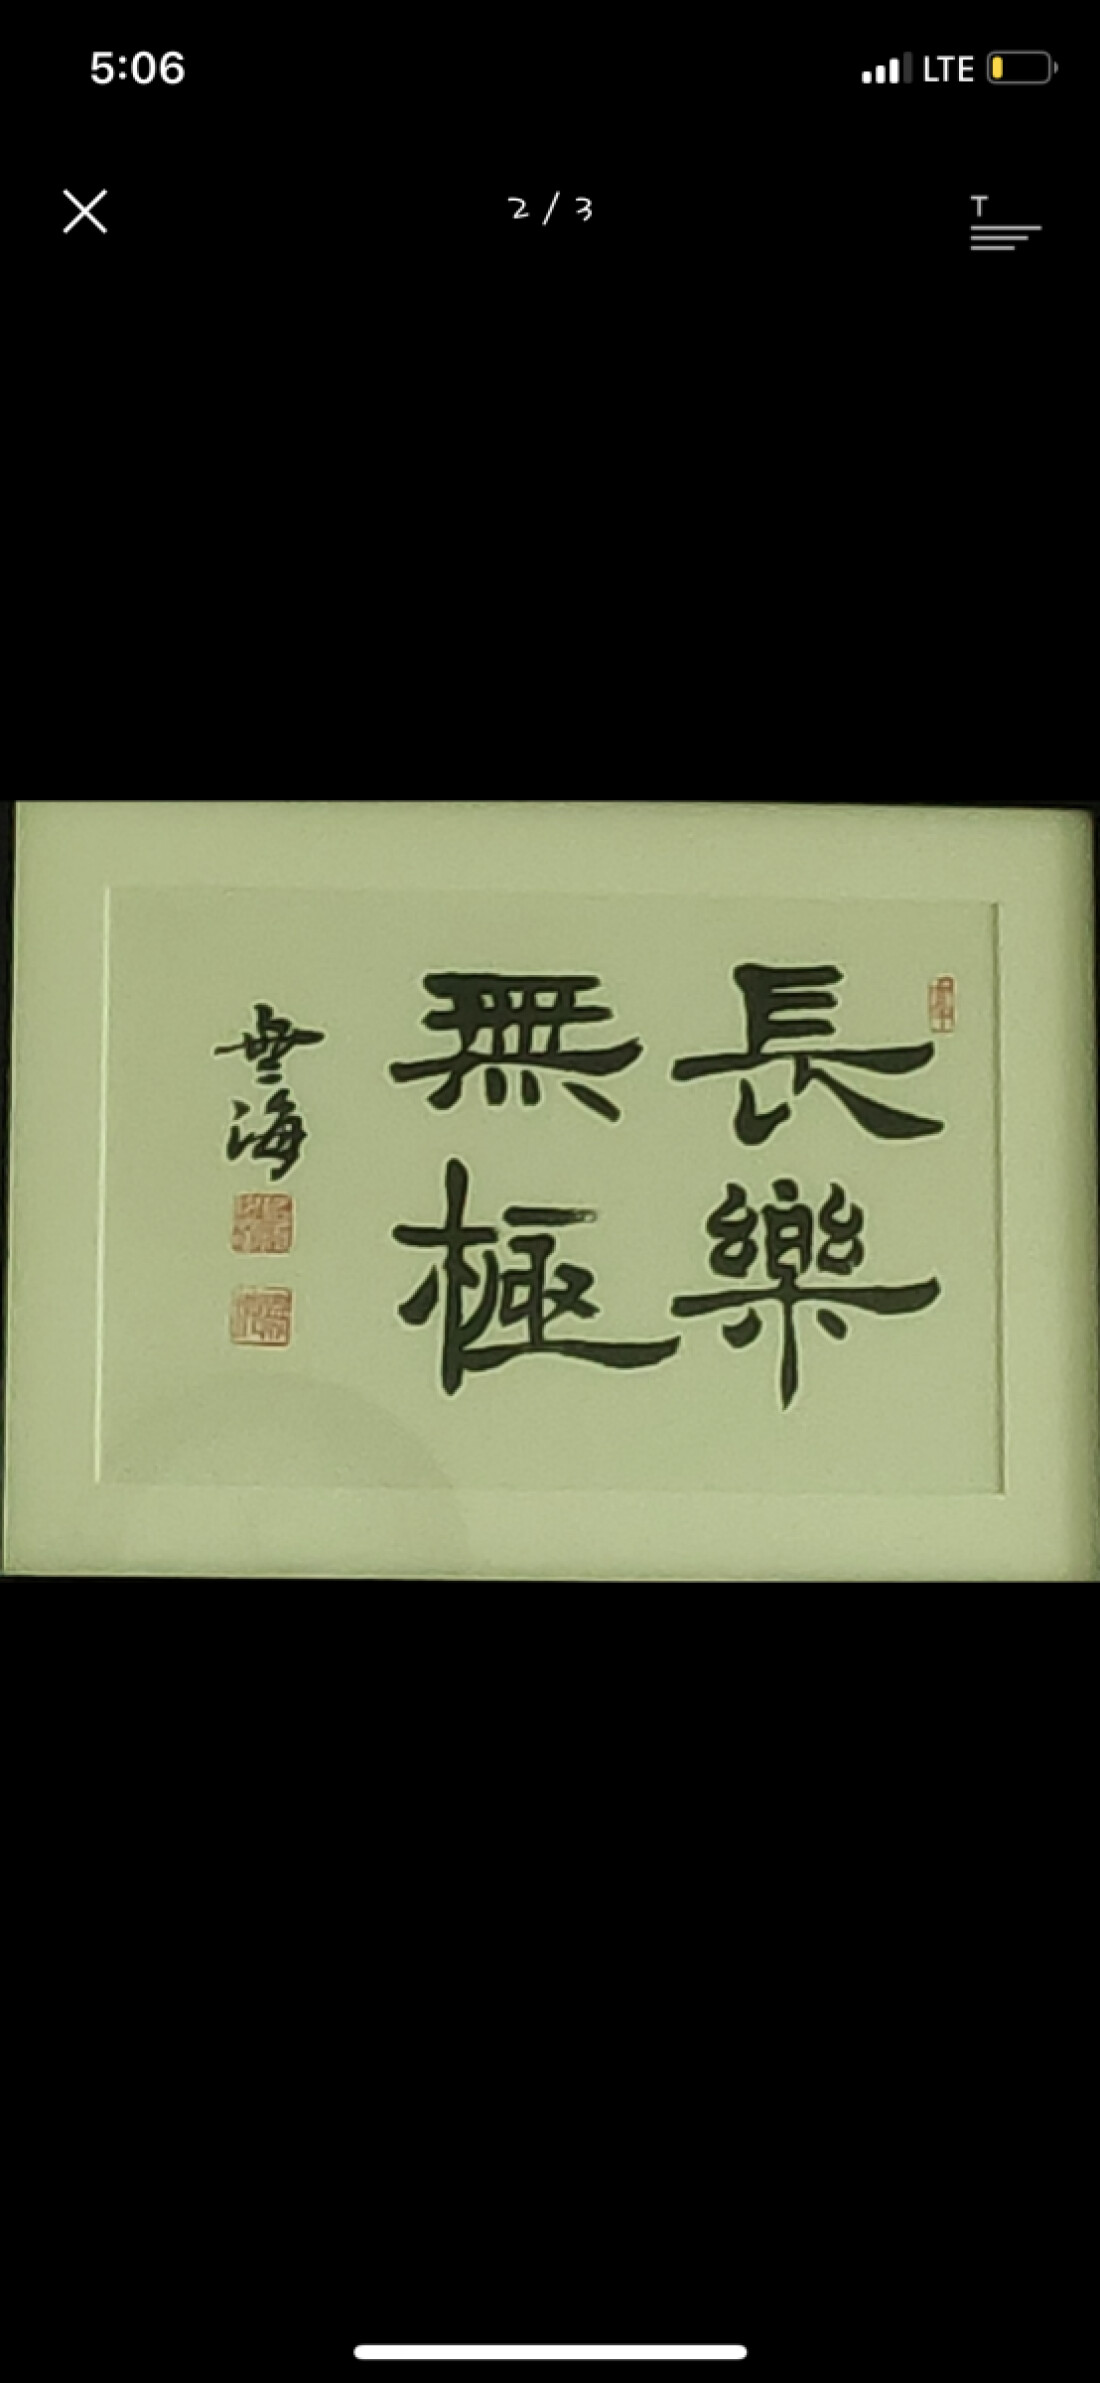 5:06
LTE
2 / 3
T
長樂
無極
無海